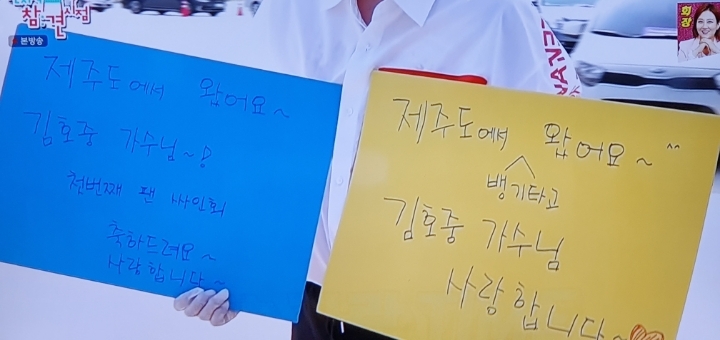 참견시점
본방송
회장
제주도에서 왔어요~
김호중 가수님~!
천번째 팬 싸인회
축하드려요~
사랑합니다~
제주도에서 왔어요~^^
뱅기타고
김호중 가수님
사랑합니다~